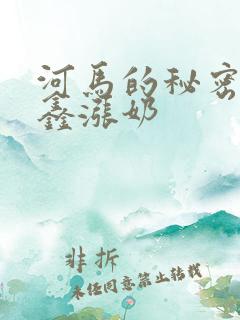 河马的秘密
鑫涨奶
非拆
未经同意禁止转载